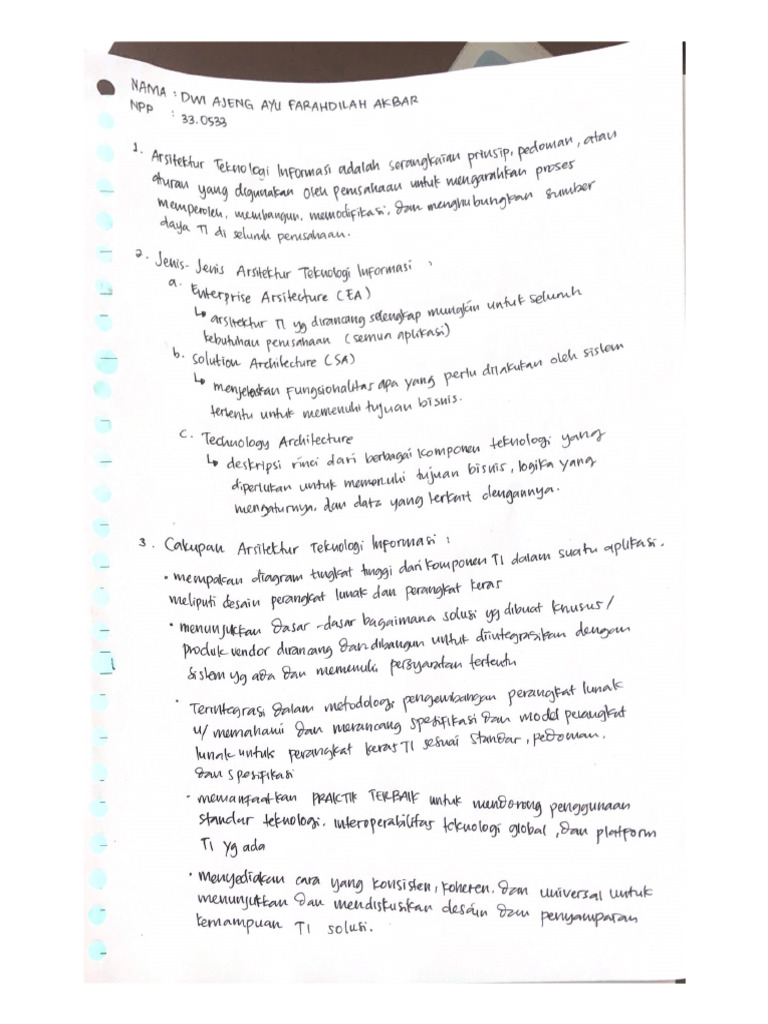 NAMA : DWI AJENG AYU FARAHDILAH AKBAR
NPP : 33.0533
1. Arsitektur Teknologi Informasi adalah serangkaian prinsip, pedoman, atau
aturan yang digunakan oleh perusahaan untuk mengarahkan proses
memperoleh, membangun, memodifikasi, dan menghubungkan sumber
daya TI di seluruh perusahaan.
2. Jenis-Jenis Arsitektur Teknologi Informasi :
a. Enterprise Arsitecture (EA)
↳ arsitektur TI yg dirancang selengkap mungkin untuk seluruh
kebutuhan perusahaan (semua aplikasi)
b. Solution Architecture (SA)
↳ menjelaskan Fungsionalitas apa yang perlu dilakukan oleh sistem
tertentu untuk memenuhi tujuan bisnis.
c. Technology Architecture
↳ deskripsi rinci dari berbagai komponen teknologi yang
diperlukan untuk memenuhi tujuan bisnis, logika yang
mengaturnya, dan data yang terkait dengannya.
3. Cakupan Arsitektur Teknologi Informasi :
• merupakan diagram tingkat tinggi dari komponen TI dalam suatu aplikasi.
meliputi desain perangkat lunak dan perangkat keras
• menunjukkan dasar-dasar bagaimana solusi yg dibuat khusus/
produk vendor dirancang dan dibangun untuk diintegrasikan dengan
sistem yg ada dan memenuhi persyaratan tertentu
• Terintegrasi dalam metodologi pengembangan perangkat lunak
u/ memahami dan merancang spesifikasi dan model perangkat
lunak untuk perangkat keras TI sesuai standar, pedoman.
dan spesifikasi
• memanfaatkan PRAKTIK TERBAIK untuk mendorong penggunaan
standar teknologi, interoperabilitas teknologi global, dan platform
TI yg ada
• menyediakan cara yang konsisten, koheren, dan universal untuk
menunjukkan dan mendiskusikan desain dan penyampaian
kemampuan TI solusi.